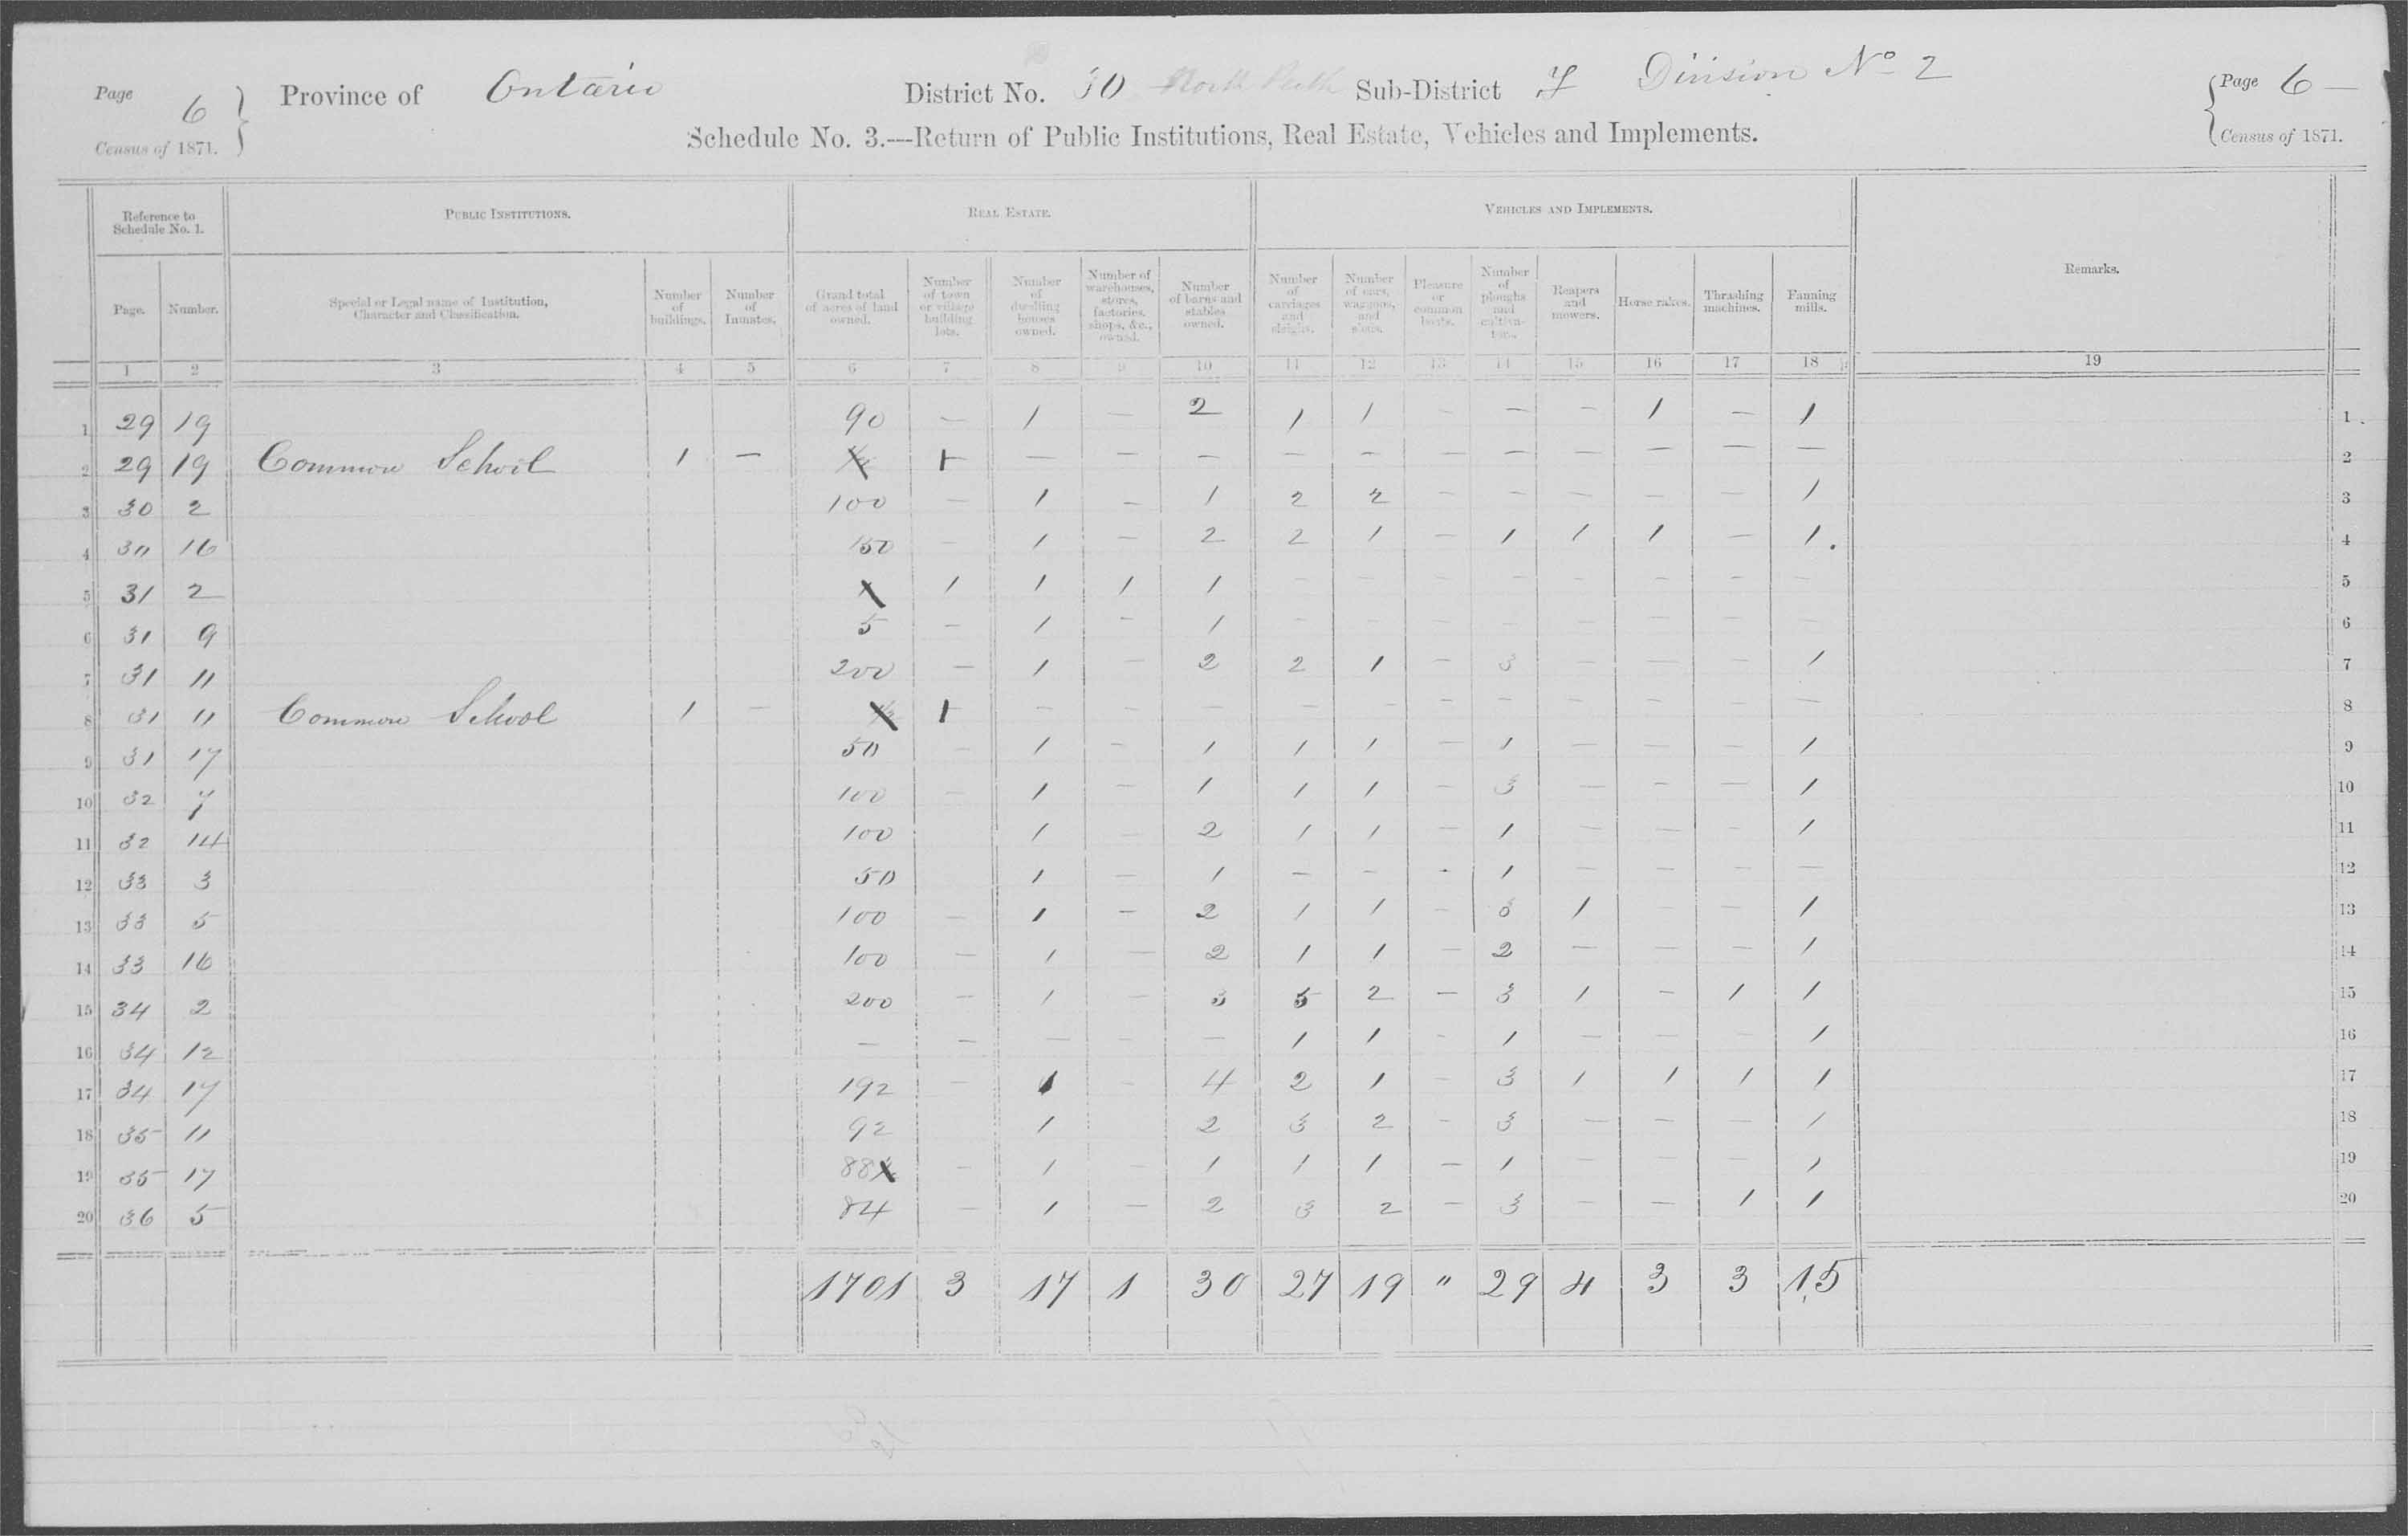 Page 6 Province of Ontario District No. 30 North Perth Sub-District Division No 2 Page 6 —
Census of 1871. Census of 1871.
Schedule No. 3.—Return of Public Institutions, Real Estate, Vehicles and Implements.
Reference to Schedule No. 1. PUBLIC INSTITUTIONS. REAL ESTATE. VEHICLES AND IMPLEMENTS. Remarks.
Page. Number. Special or Legal name of Institution, Character and Classification. Number of buildings. Number of Inmates. Grand total of acres of land owned. Number of town or village building lots. Number of dwelling houses owned. Number of warehouses, stores, factories, shops, &c., owned. Number of barns and stables owned. Number of carriages and sleighs. Number of cars, waggons, and sleds. Pleasure or common boats. Number of ploughs and cultivators. Reapers and mowers. Horse rakes. Thrashing machines. Fanning mills.
1 2 3 4 5 6 7 8 9 10 11 12 13 14 15 16 17 18 19
1 29 19 90 — 1 — 2 1 1 - — - 1 — 1 1
2 29 19 Common School 1 — 1 — — — — — — — — — — — 2
3 30 2 100 — 1 — 1 2 2 — — — — — 1 3
4 30 16 150 — 1 — 2 2 1 — 1 1 1 — 1. 4
5 31 2 1 1 1 1 — — — — — — — — 5
6 31 9 5 — 1 - 1 — — — — — — — — 6
7 31 11 200 — 1 — 2 2 1 — 3 — — — 1 7
8 31 11 Common School 1 — 1 — — — — — — — — — — — 8
9 31 17 50 — 1 — 1 1 1 — 1 — — — 1 9
10 32 7 100 — 1 — 1 1 1 — 3 — — — 1 10
11 32 14 100 1 — 2 1 1 — 1 — — — 1 11
12 33 3 50 1 — 1 — — - 1 — — — — 12
13 33 5 100 — 1 — 2 1 1 — 3 1 — — 1 13
14 33 16 100 — 1 — 2 1 1 — 2 — — — 1 14
15 34 2 200 — 1 — 3 5 2 — 3 1 — 1 1 15
16 34 12 — — — — — 1 1 - 1 — — — 1 16
17 34 17 192 — 1 — 4 2 1 — 3 1 1 1 1 17
18 35 11 92 1 2 3 2 - 3 — — — 1 18
19 35 17 88 — 1 — 1 1 1 — 1 — — — 1 19
20 36 5 84 — 1 — 2 3 2 — 3 — — 1 1 20
1701 3 17 1 30 27 19 " 29 4 3 3 15